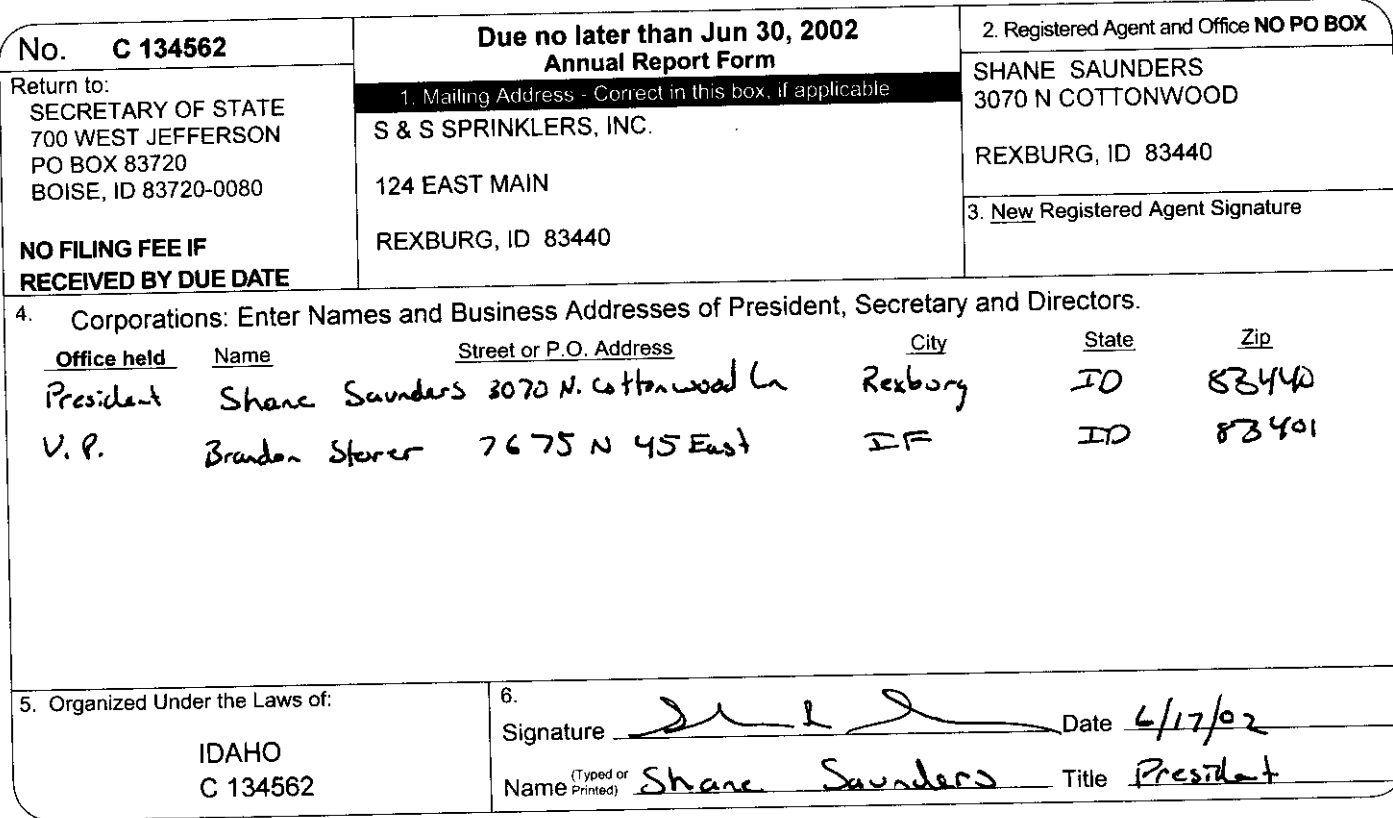 No. C 134562
Return to:
SECRETARY OF STATE
700 WEST JEFFERSON
PO BOX 83720
BOISE, ID 83720-0080
NO FILING FEE IF
RECEIVED BY DUE DATE
Due no later than Jun 30, 2002
Annual Report Form
1. Mailing Address - Correct in this box, if applicable
S & S SPRINKLERS, INC.
124 EAST MAIN
REXBURG, ID 83440
2. Registered Agent and Office NO PO BOX
SHANE SAUNDERS
3070 N COTTONWOOD
REXBURG, ID 83440
3. New Registered Agent Signature
4. Corporations: Enter Names and Business Addresses of President, Secretary and Directors.
Office held Name Street or P.O. Address City State Zip
President Shane Saunders 3070 N. Cottonwood Ln Rexburg ID 83440
V.P. Brandon Storer 7675 N 45 East IF ID 83401
5. Organized Under the Laws of:
IDAHO
C 134562
6.
Signature Date 6/17/02
Name (Typed or Printed) Shane Saunders Title President